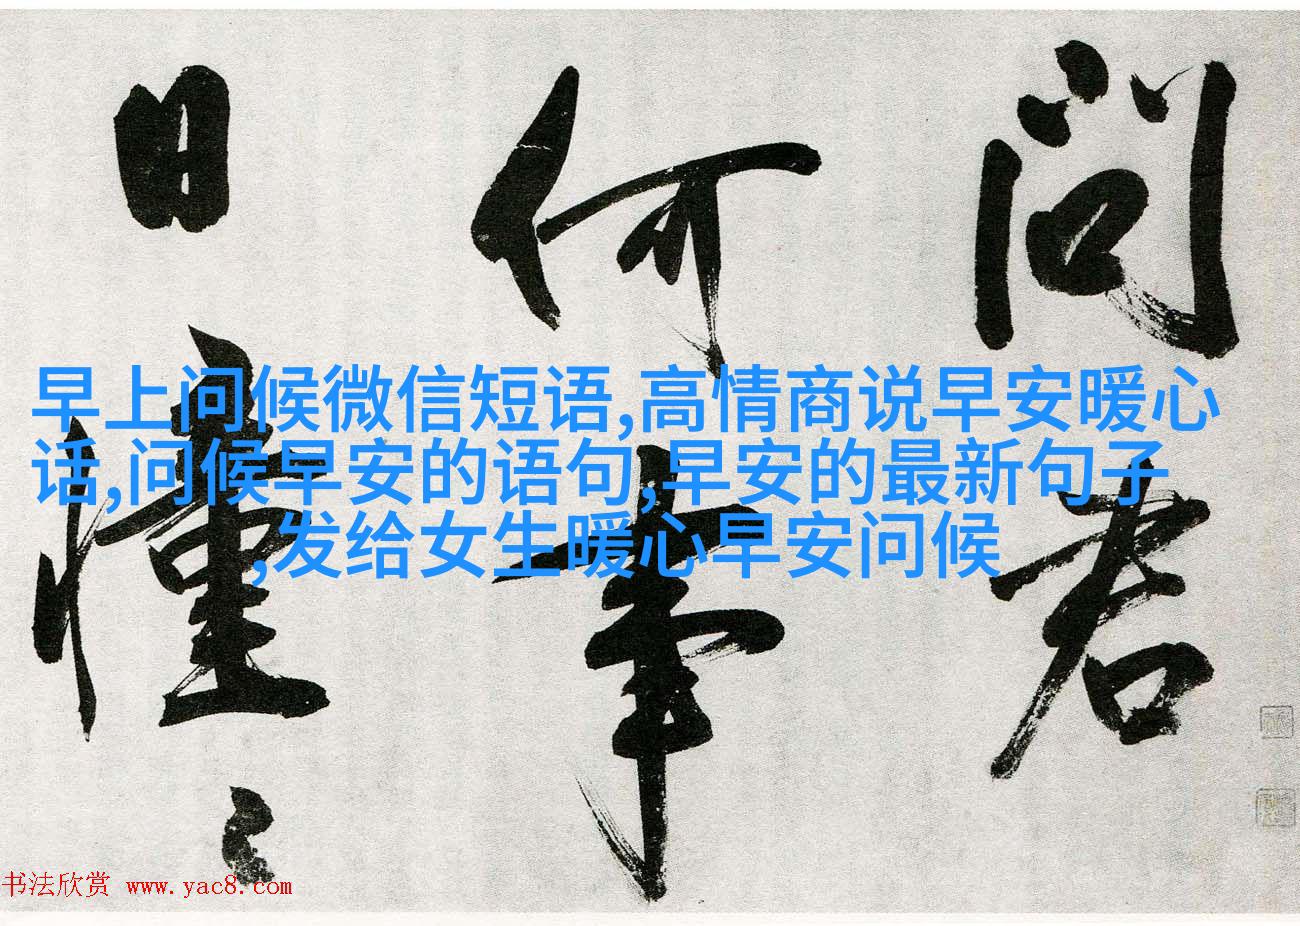 问君
何事
日憧〻
早上问候微信短语,高情商说早安暖心
话,问候早安的语句,早安的最新句子
,发给女生暖心早安问候
书法欣赏 www.yac8.com